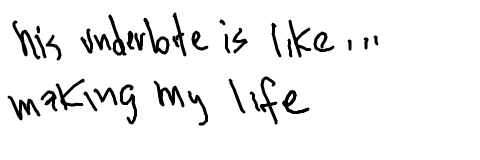 his underbite is like...
making my life